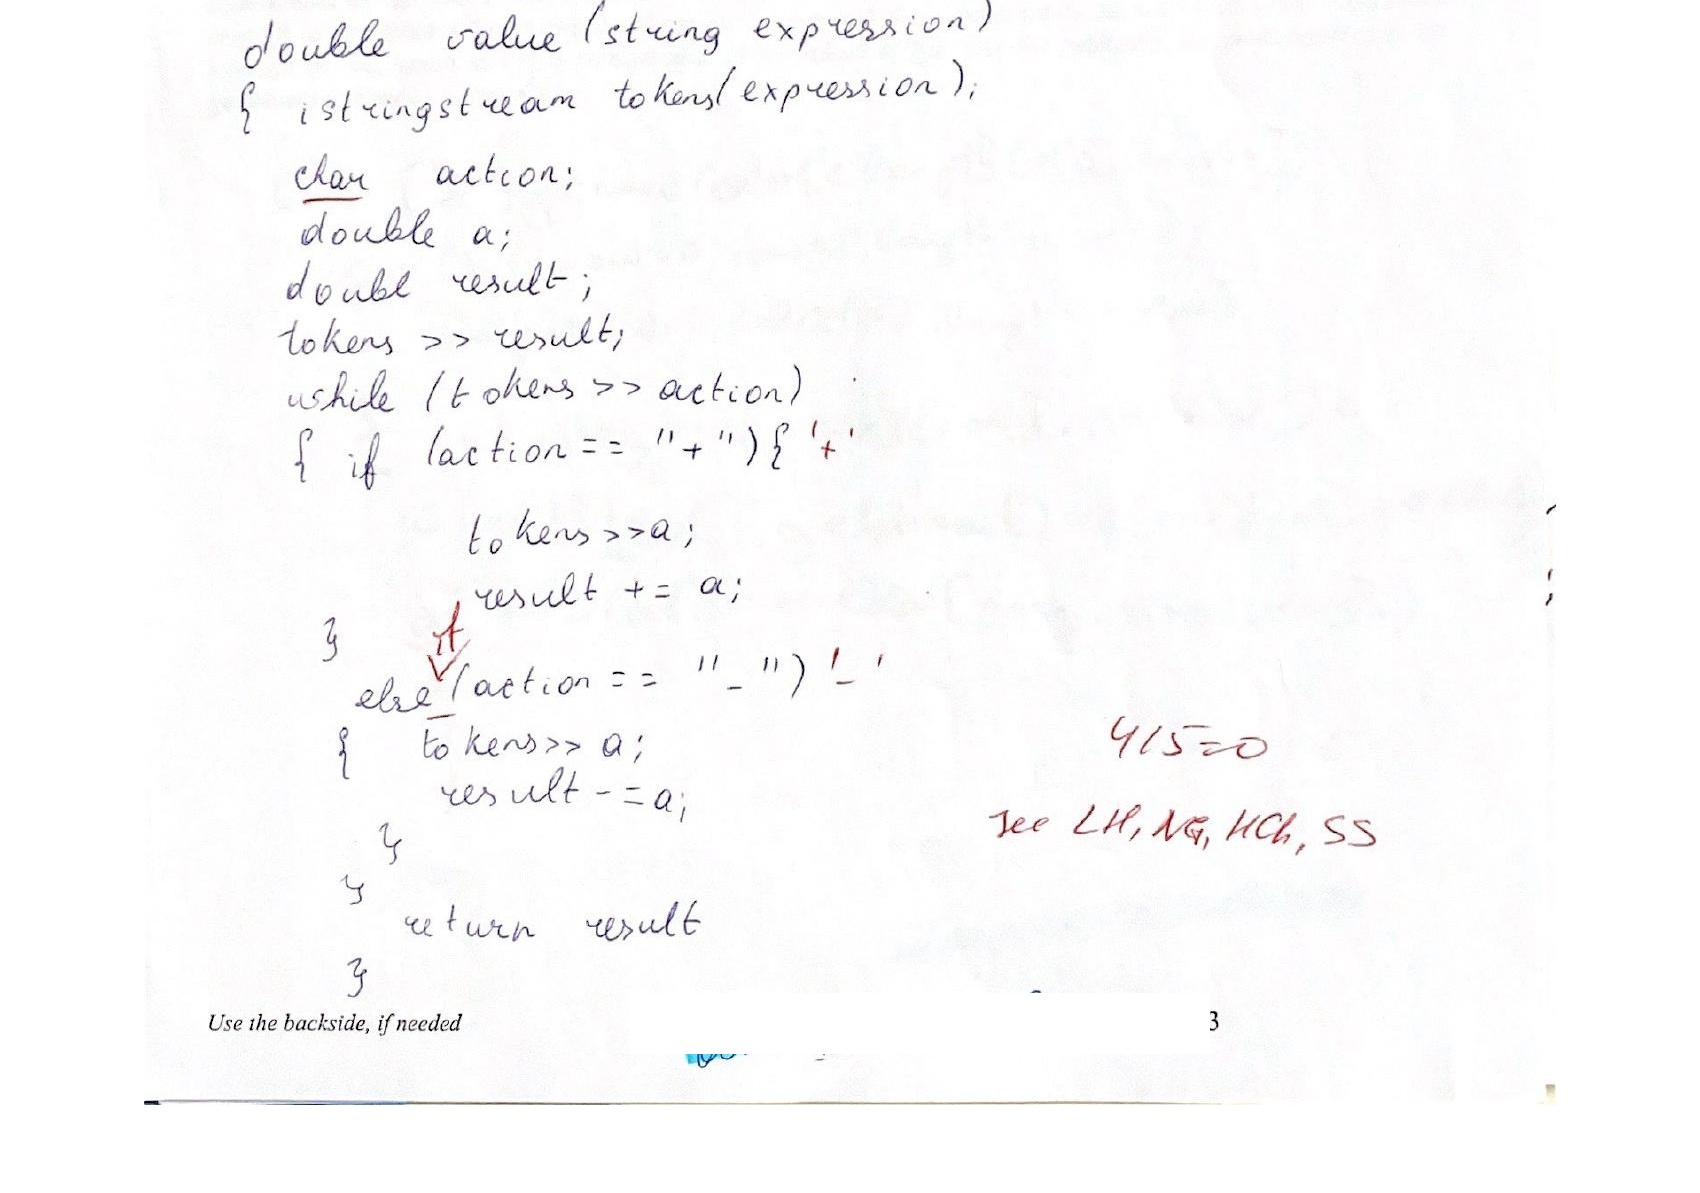 double value (string expression)
{ istringstream tokens(expression);
char action;
double a;
double result;
tokens >> result;
while (tokens >> action)
{ if (action == "+") { '+'
tokens >> a;
result += a;
}
if
else (action == "-") '-'
{ tokens >> a;
4/5=0
result -= a;
see LH, NG, HCh, SS
}
}
return result
}
Use the backside, if needed 3